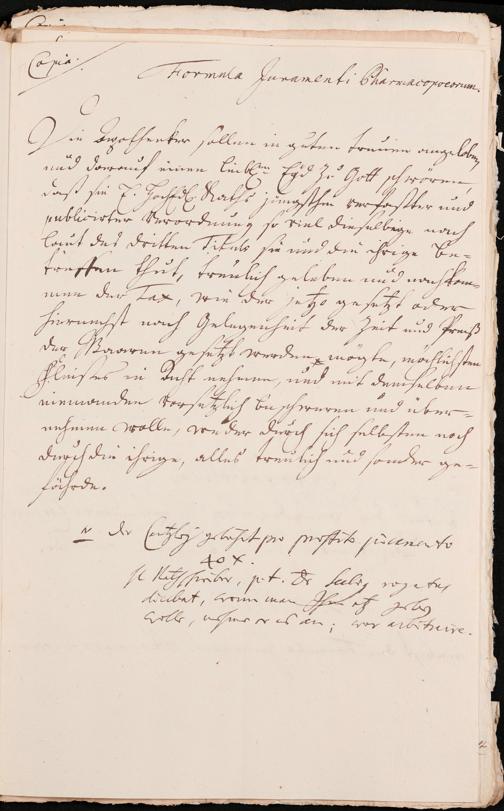 Copia.
Formula Juramenti Pharmacopoeorum.
Die Apothecker sollen in guten treuen angeloben
und darauf einen leiblen Eyd zu Gott schwören,
daß sie E. Hochedl. Raths jüngsthin verfaßter und
publicirter Verordnung so viel dieselbige nach
laut des dritten Tituls sie und die ihrige be-
treffen thut, treulich geleben und nachkom-
men der Tax, wie der jetzo gesetzt oder
hiernechst nach Gelegenheit der Zeit und Preiß
der Waaren gesetzt werden mögte, möchlichsten
Fleises in Acht nehmen, und mit demselben
niemanden vorsetzlich beschweren und über-
nehmen wolle, weder durch sich selbsten noch
durch die ihrige, alles treulich und sonder ge-
fährde.
der Cantzley gebührt pro praestito juramento
40 x.
H. Rathschreiber, p.t. Dr. rogatus
dicebat, wenn man geben
wolle, nehme er es an; war arbitraire.